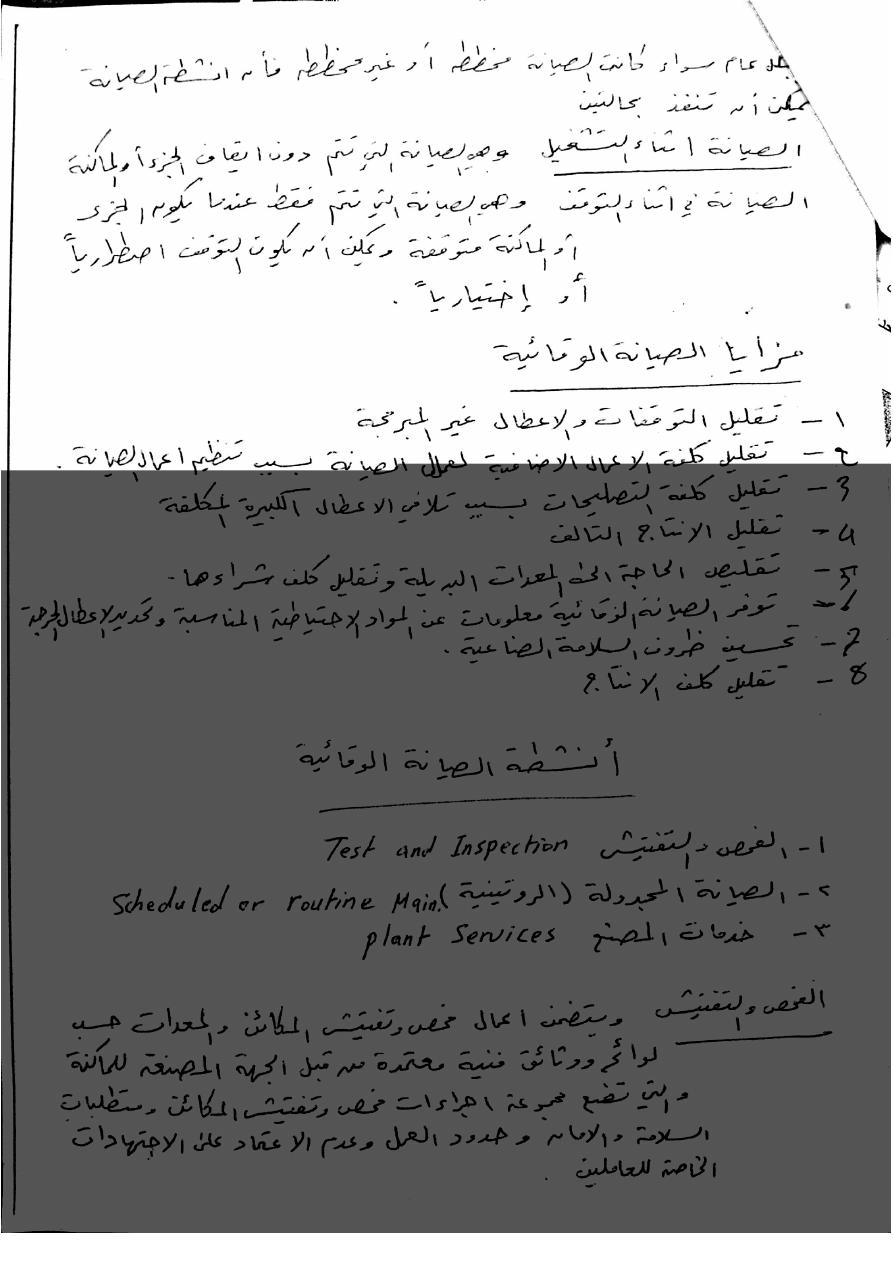 عام سواء كانت الصيانة مخططه أو غير مخططه فأن انشطة الصيانة
يمكن أن تنفذ بحالتين
الصيانة اثناء التشغيل وهي الصيانة التي تتم دون ايقاف الجزء أو الماكنة
الصيانة في اثناء التوقف وهي الصيانة التي تتم فقط عندما يكون الجزء
أو الماكنة متوقفة ويمكن أن يكون التوقف اضطرارياً
أو إختيارياً .
مزايا الصيانة الوقائية
١- تقليل التوقفات والاعطال غير المبرمجة
2- تقليل كلفة الاعمال الاضافية لعمال الصيانة بسبب تنظيم اعمال الصيانة .
3- تقليل كلفة التصليحات بسبب تلافي الاعطال الكبيرة المكلفة
4- تقليل الانتاج التالف
5- تقليص الحاجة الى المعدات البديلة وتقليل كلف شراءها .
6- توفر الصيانة الوقائية معلومات عن المواد الاحتياطية المناسبة وتحديد الاعطال الحرجة
7- تحسين ظروف السلامة الصناعية .
8- تقليل كلف الانتاج
أنشطة الصيانة الوقائية
١- الفحص والتفتيش Test and Inspection
٢- الصيانة المجدولة (الروتينية) Scheduled or routine Main.
٣- خدمات المصنع plant Services
الفحص والتفتيش ويتضمن اعمال فحص وتفتيش المكائن والمعدات حسب
لوائح ووثائق فنية معتمدة من قبل الجهة المصنعة للماكنة
والتي تضع مجموعة اجراءات فحص وتفتيش المكائن ومتطلبات
السلامة والامان وحدود العمل وعدم الاعتماد على الاجتهادات
الخاصة للعاملين .